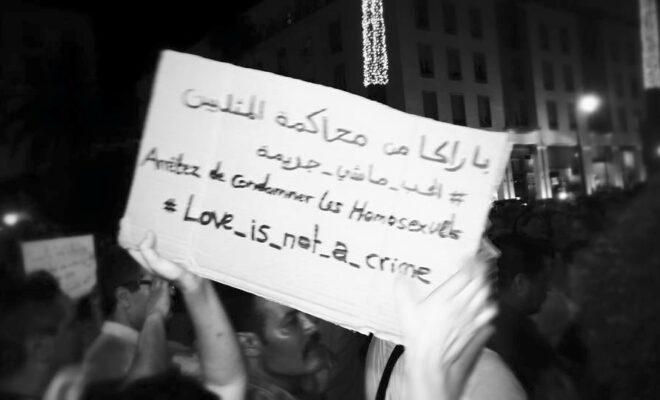 باراكا من محاكمة المثليين
# الحب_ماشي_جريمة
Arrêtez de condamner les Homosexuels
# Love_is_not_a_crime